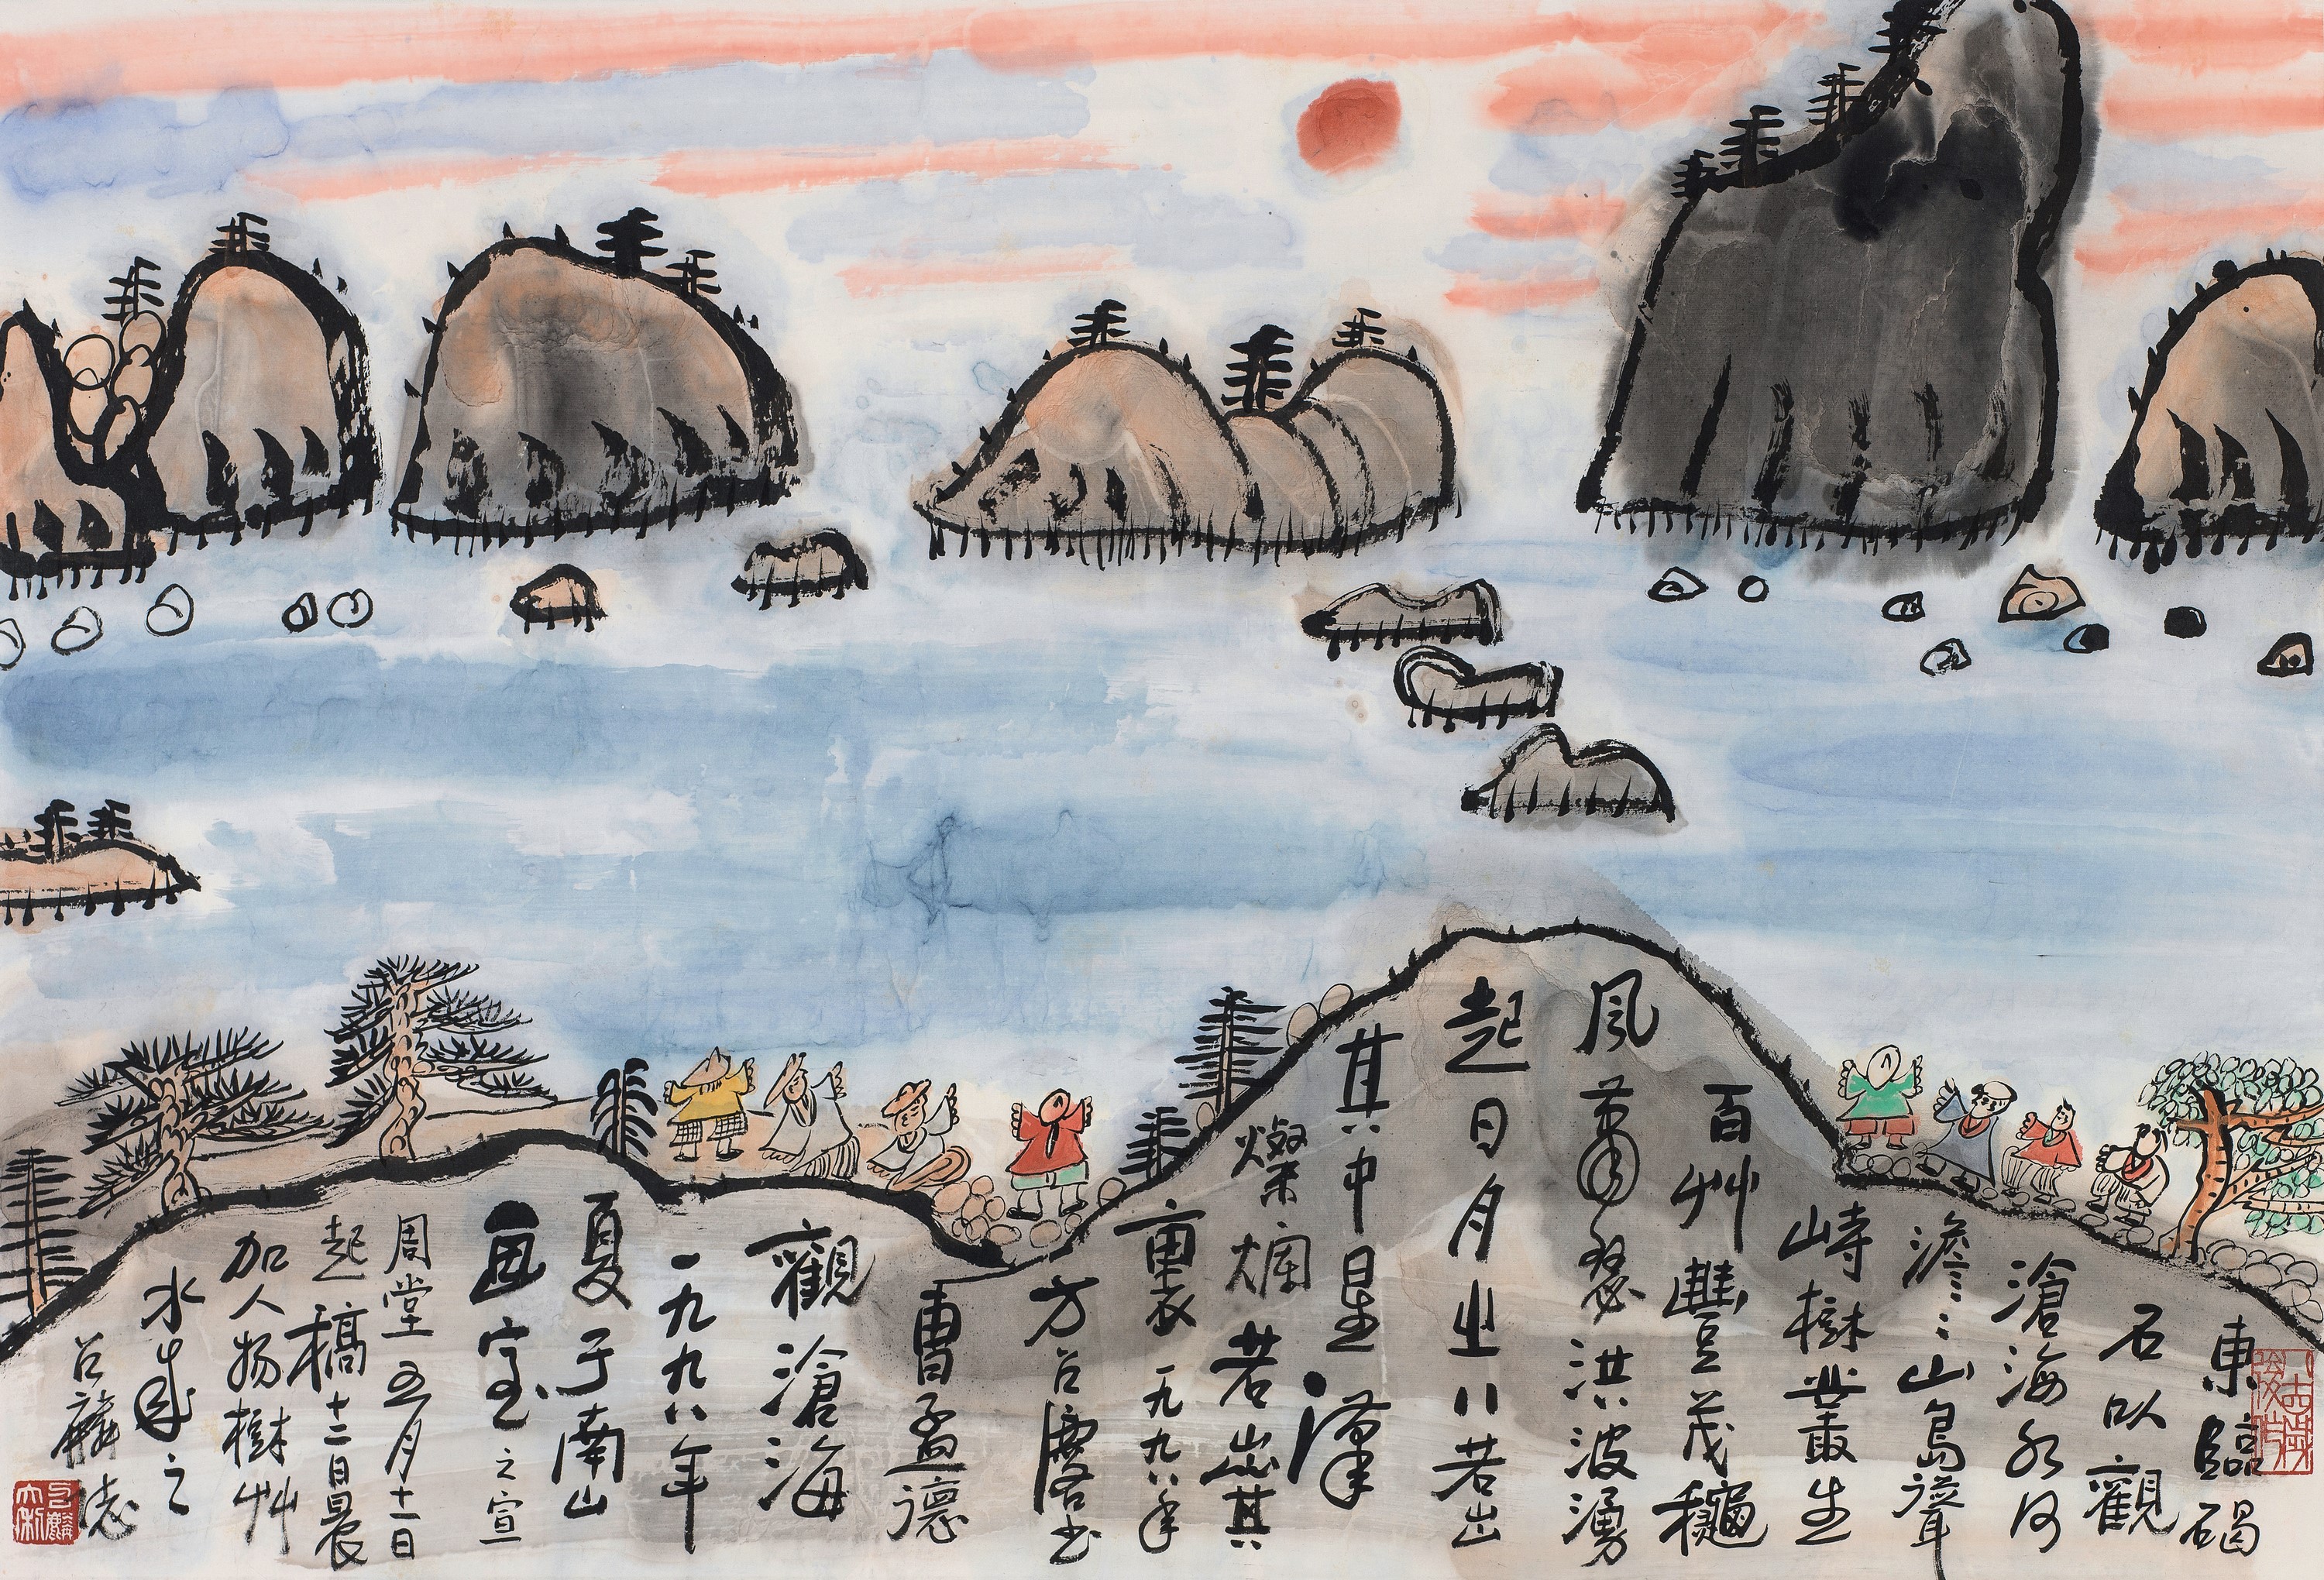 東臨碣
石以觀
滄海水何
澹〻山島聳
峙樹叢生
百艸豐茂龝
風蕭瑟洪波湧
起日月之行若出
其中星漢
燦爛若出其
裏一九九八年
方召麐書
曹孟德
觀滄海
一九九八年
夏于南山
畫室之宣
周堂五月十一日
起稿十二日晨
加人物樹艸
水成之
召麐志